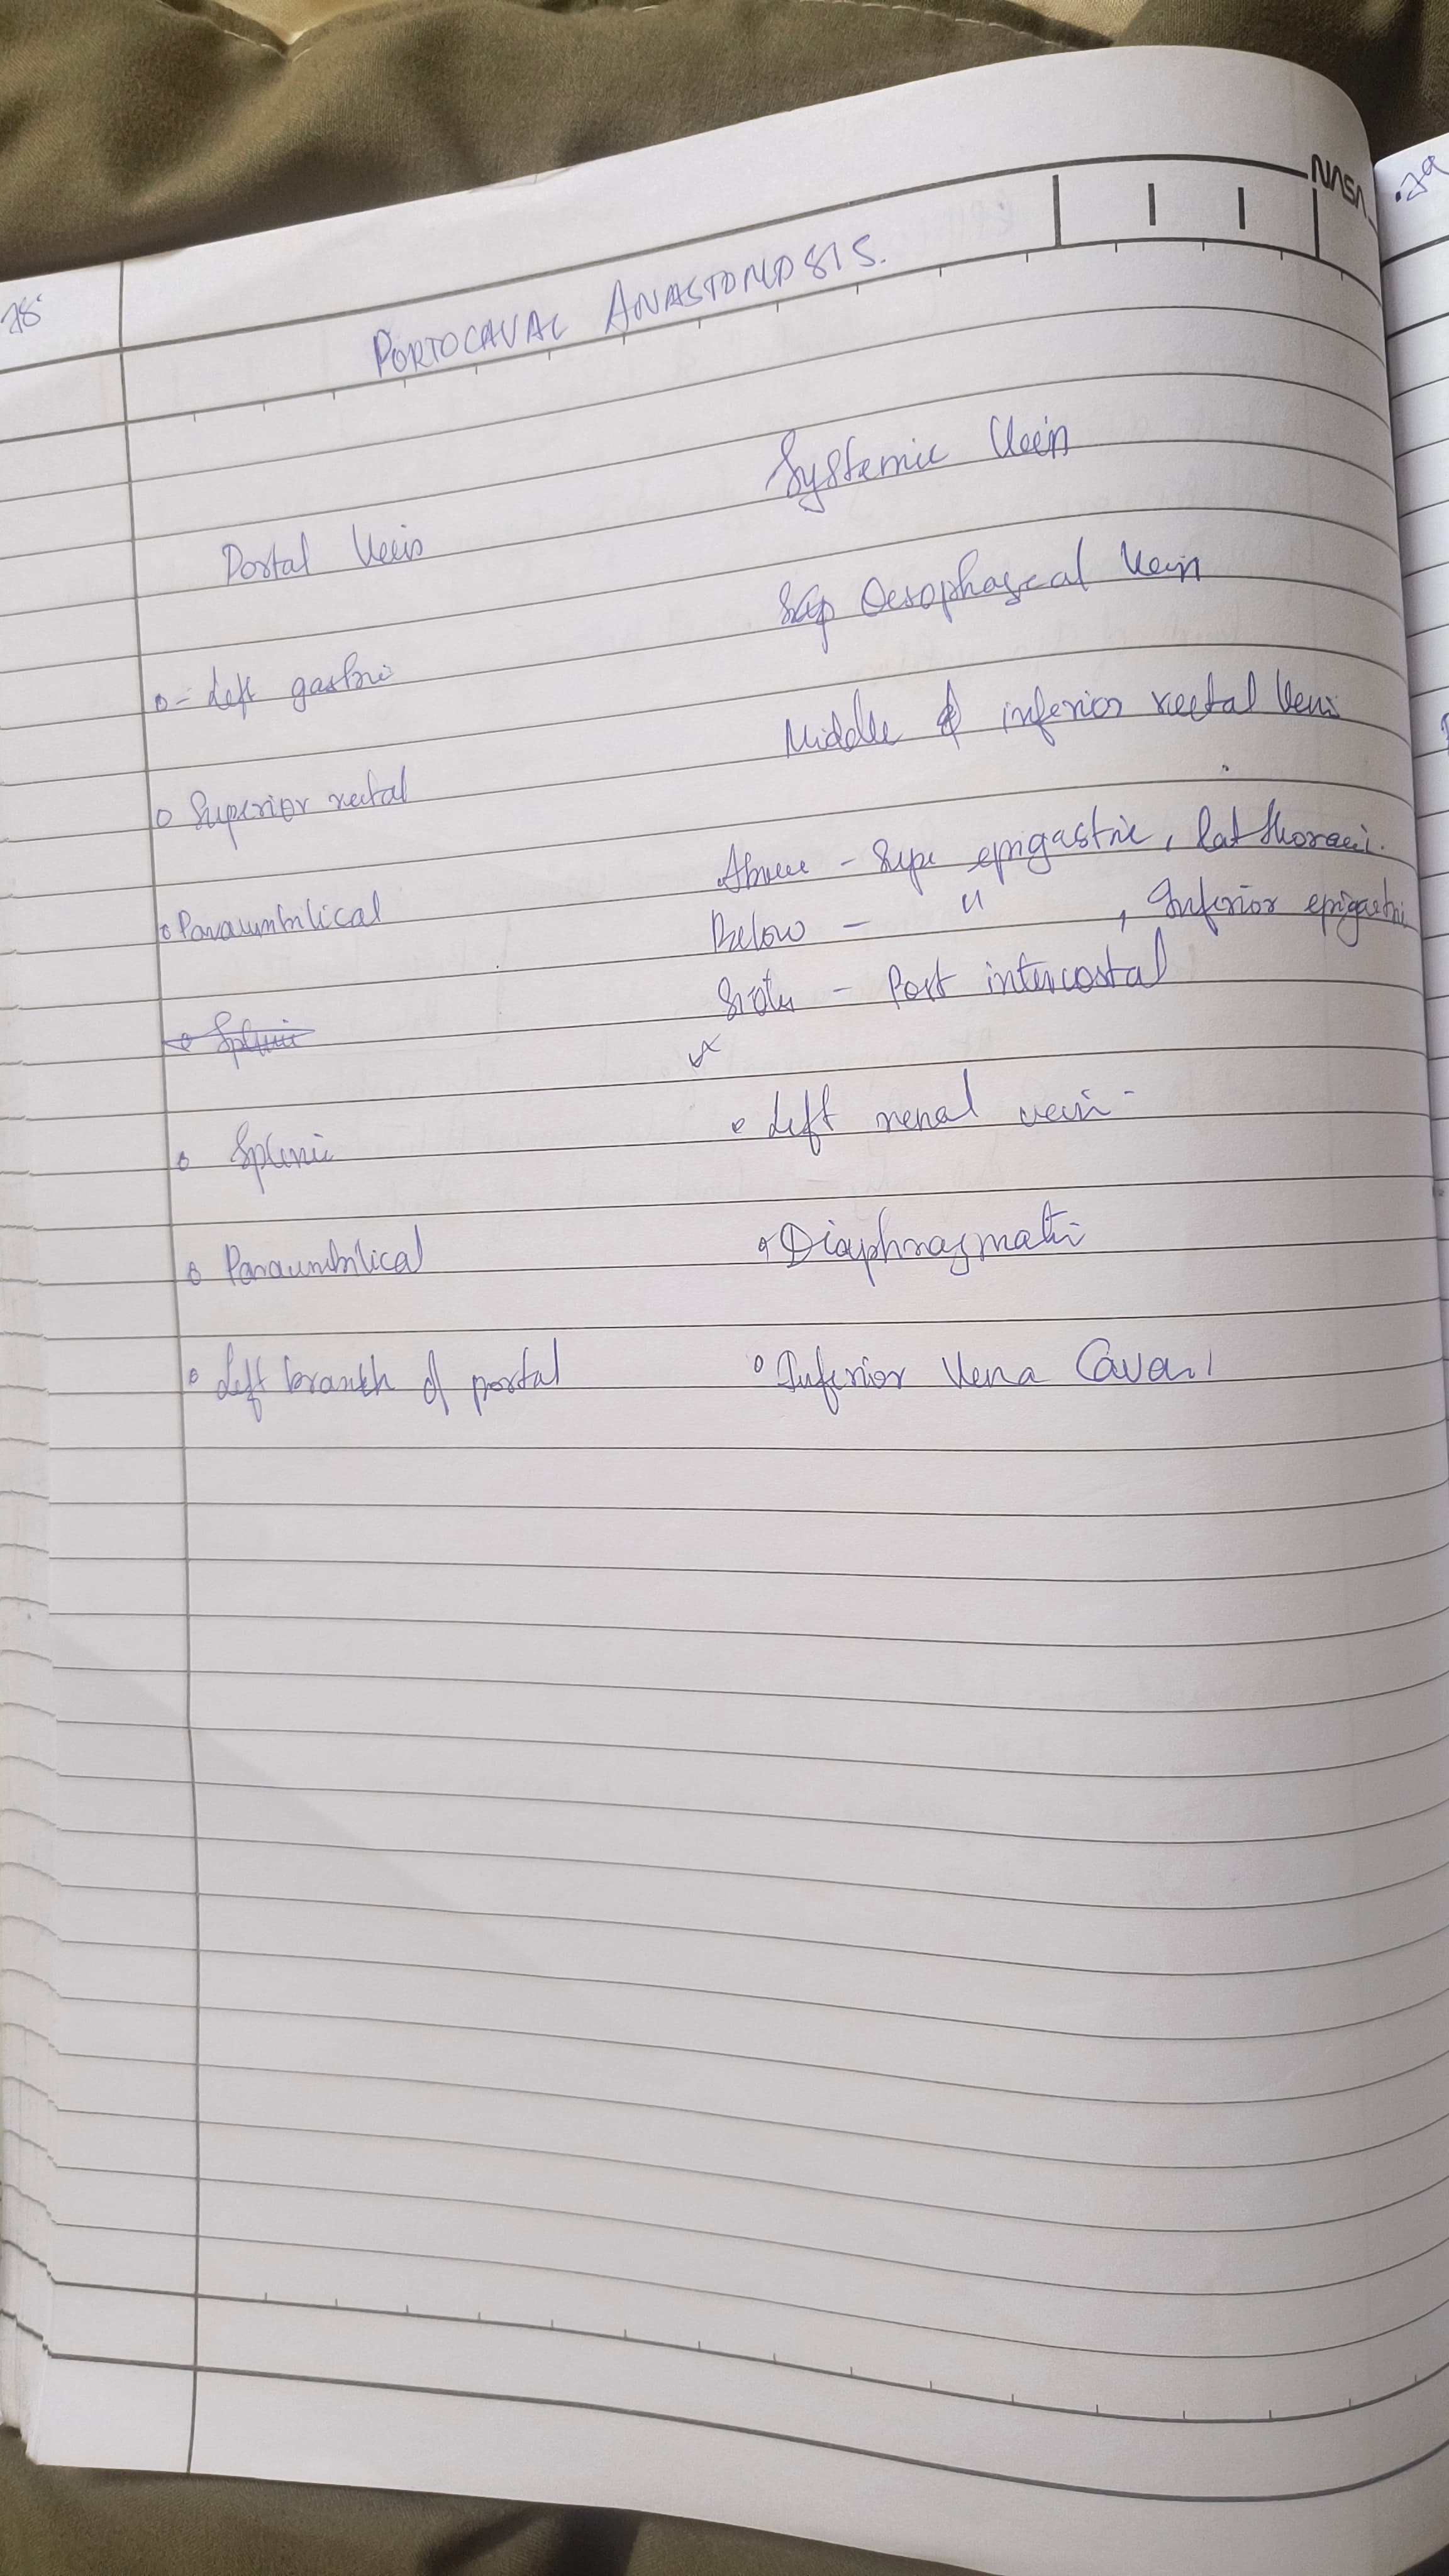 NASA
78
.79
PORTOCAVAL ANASTOMOSIS.
Portal Vein
Systemic Vein
- Left gastric
Oesophageal Vein
Superior rectal
Middle & inferior rectal Vein
Paraumbilical
Above - Supe epigastric, lat thoraci.
Below - " , Inferior epigastri
- Post intercostal
Splenic
Splenic
Left renal vein -
Paraumbilical
Diaphragmati
Left branch of portal
Inferior Vena Cava